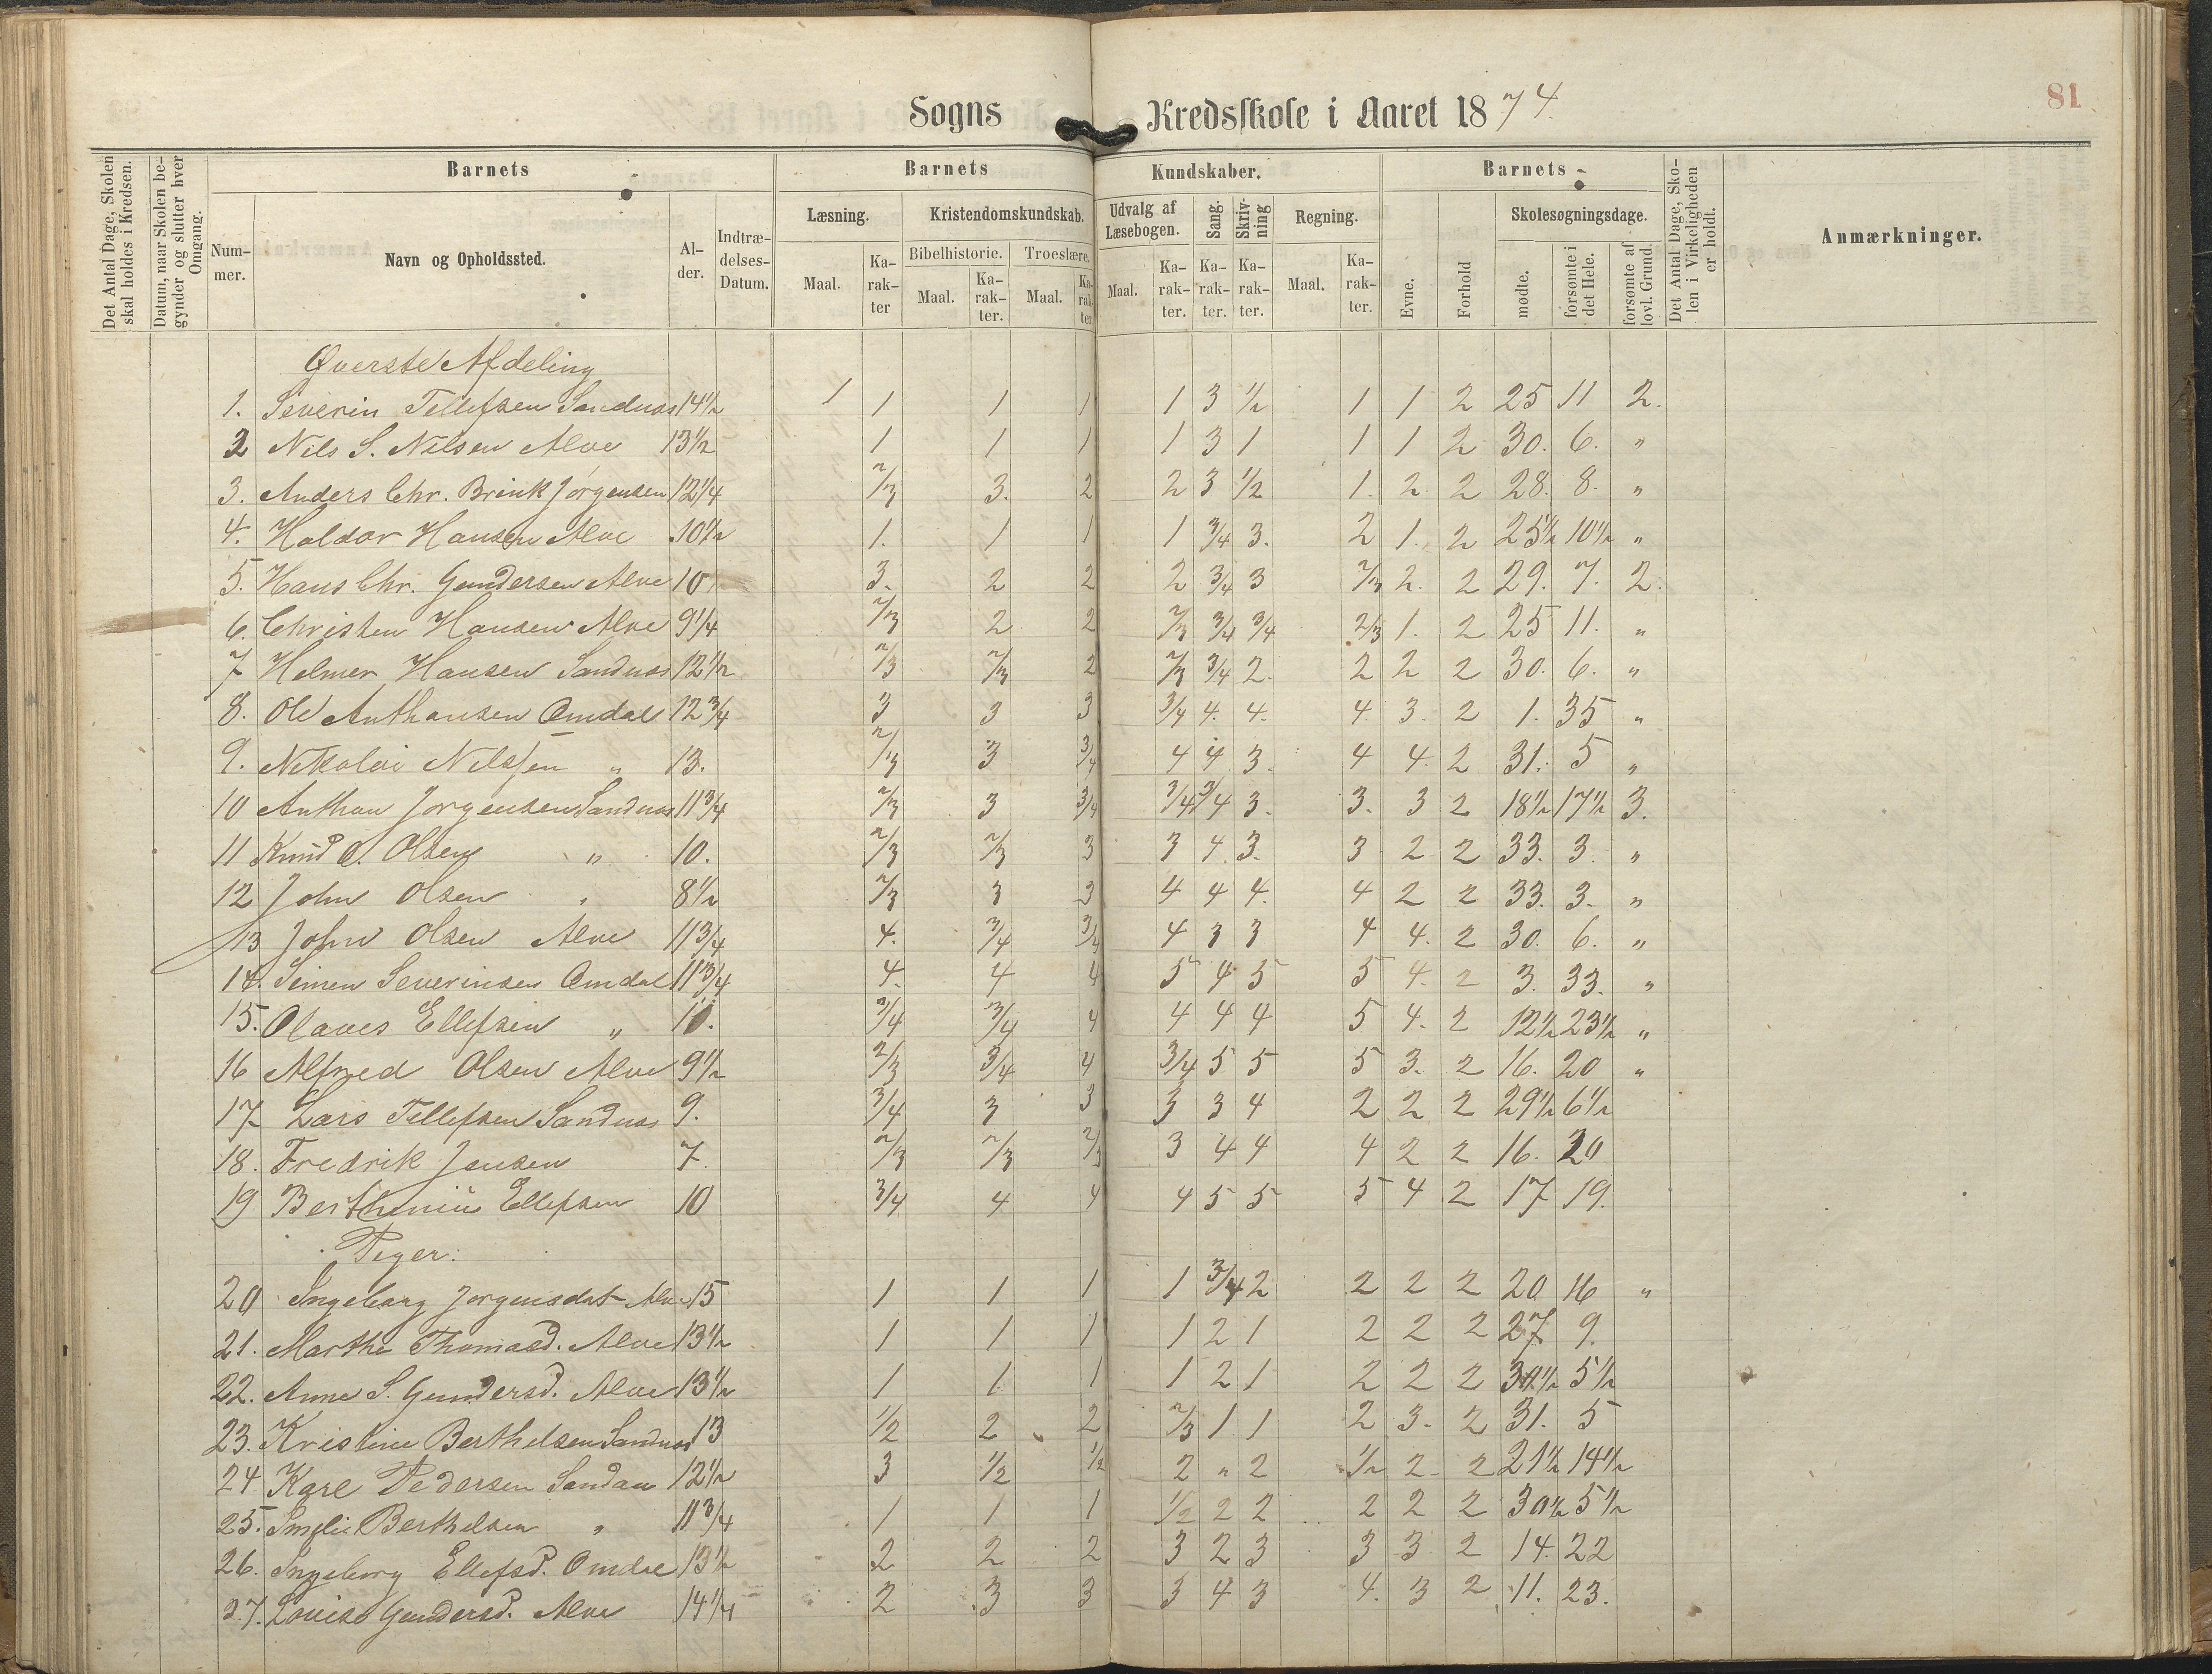 81
Sogns Kredsskole i Aaret 1874.
Det Antal Dage, Skolen skal holdes i Kredsen.
Datum, naar Skolen begynder og slutter hver Omgang.
Barnets
Barnets Kundskaber.
Barnets
Det Antal Dage, Skolen i Virkeligheden er holdt.
Anmærkninger.
Nummer.
Navn og Opholdssted.
Alder.
Indtrædelses-Datum.
Læsning.
Kristendomskundskab.
Udvalg af Læsebogen.
Sang.
Skrivning
Regning.
Evne.
Forhold
Skolesøgningsdage.
Bibelhistorie.
Troeslære.
Maal.
Karakter
Maal.
Karakter.
Maal.
Karakter.
Maal.
Karakter.
Karakter.
Karakter.
Maal.
Karakter.
mødte.
forsømte i det Hele.
forsømte af lovl. Grund.
Øverste Afdeling
1. Severin Tellefsen Sandnæs 14½ 1 1 1 1 1 3 ½ 1 1 2 25 11 2.
2 Nils S. Nilsen Alve 13½ 1 1 1 1 3 1 1 1 2 30. 6. "
3. Anders Chr. Brink Jørgensen 12¼ 2/3 3. 2 2 3 ½ 1. 2. 2 28. 8. "
4. Haldor Hansen Alve 10½ 1. 1 1 1 3/4 3. 2 1. 2 25½ 10½ "
5. Hans Chr. Gundersen Alve 10 3. 2 2 2 3/4 3 2/3 2. 2 29. 7. 2.
6. Christen Hansen Alve 9¼ 2/3 2 2 2/3 3/4 3/4 2/3 1. 2 25 11. "
7 Helmer Hansen Sandnæs 12½ 2/3 2/3 2 2/3 3/4 2. 2 2 2 30. 6. "
8. Ole Anthonsen Omdal 12¾ 3 3 3 3/4 4. 4. 4 3. 2 1. 35 "
9. Nikolai Nilssen " 13. 2/3 3 3/4 4 4 3. 4 4. 2 31. 5 "
10 Anthon Jørgensen Sandnæs 11¾ 2/3 3 3/4 3/4 3/4 3. 3. 3 2 18½ 17½ 3.
11 Knud O. Olsen " 10. 2/3 2/3 3 3 4. 3. 3 2 2 33. 3. "
12 John Olsen " 8½ 2/3 3 3 4 4 4. 4 2 2 33. 3. "
13 John Olsen Alve 11¾ 4. 3/4 3/4 4 3 3 4 4. 2 30. 6. "
14. Simen Severinsen Omdal 11¾ 4. 4 4 5 4 5 5 4. 2 3. 33. "
15. Olaves Ellefsen " 10. 3/4 3/4 4 4 4 4 5 4. 2 12½ 23½ "
16 Alfred Olsen Alve 9½ 2/3 3/4 4 3/4 5 5 5 3. 2 16. 20 "
17 Lars Tellefsen Sandnæs 9. 3/4 3 3 3 3 4 2 2 2 29½ 6½
18. Fredrik Jensen 7. 2/3 2/3 2/3 3 4 4 4 2 2 16. 20
19 Berthenius Ellefsen 10 3/4 4 4 4 5 5 5 4 2 17 19.
Piger:
20 Ingeborg Jørgensdat Alve 15 1 1 1 1 3/4 2 2 2 2 20 16 "
21. Marthe Thomasd. Alve 13½ 1 1 1 1 2 1 2 2 2 27 9.
22. Anne S. Gundersd. Alve 13½ 1 1 1 1 2 1 2 2 2 5½
23. Kristine Berthelsen Sandnæs 13 ½ 2 2 2/3 1 1 2 3. 2 31. 5
24 Pedersen 12½ 3 ½ ½ 2 " 2 ½ 2. 2 21½ 14½
25. Berthelsen " 11¾ 1 1 1 ½ 2 2 2 2 2 30½ 5½
26. Ingeborg Ellefsd. Omdal 13½ 2 2 2 3 2 3 3 3 2 14. 22
27. Louise Gundersd. Alve 14¼ 2 3 3 3 4 3 4. 3 2 11. 23.